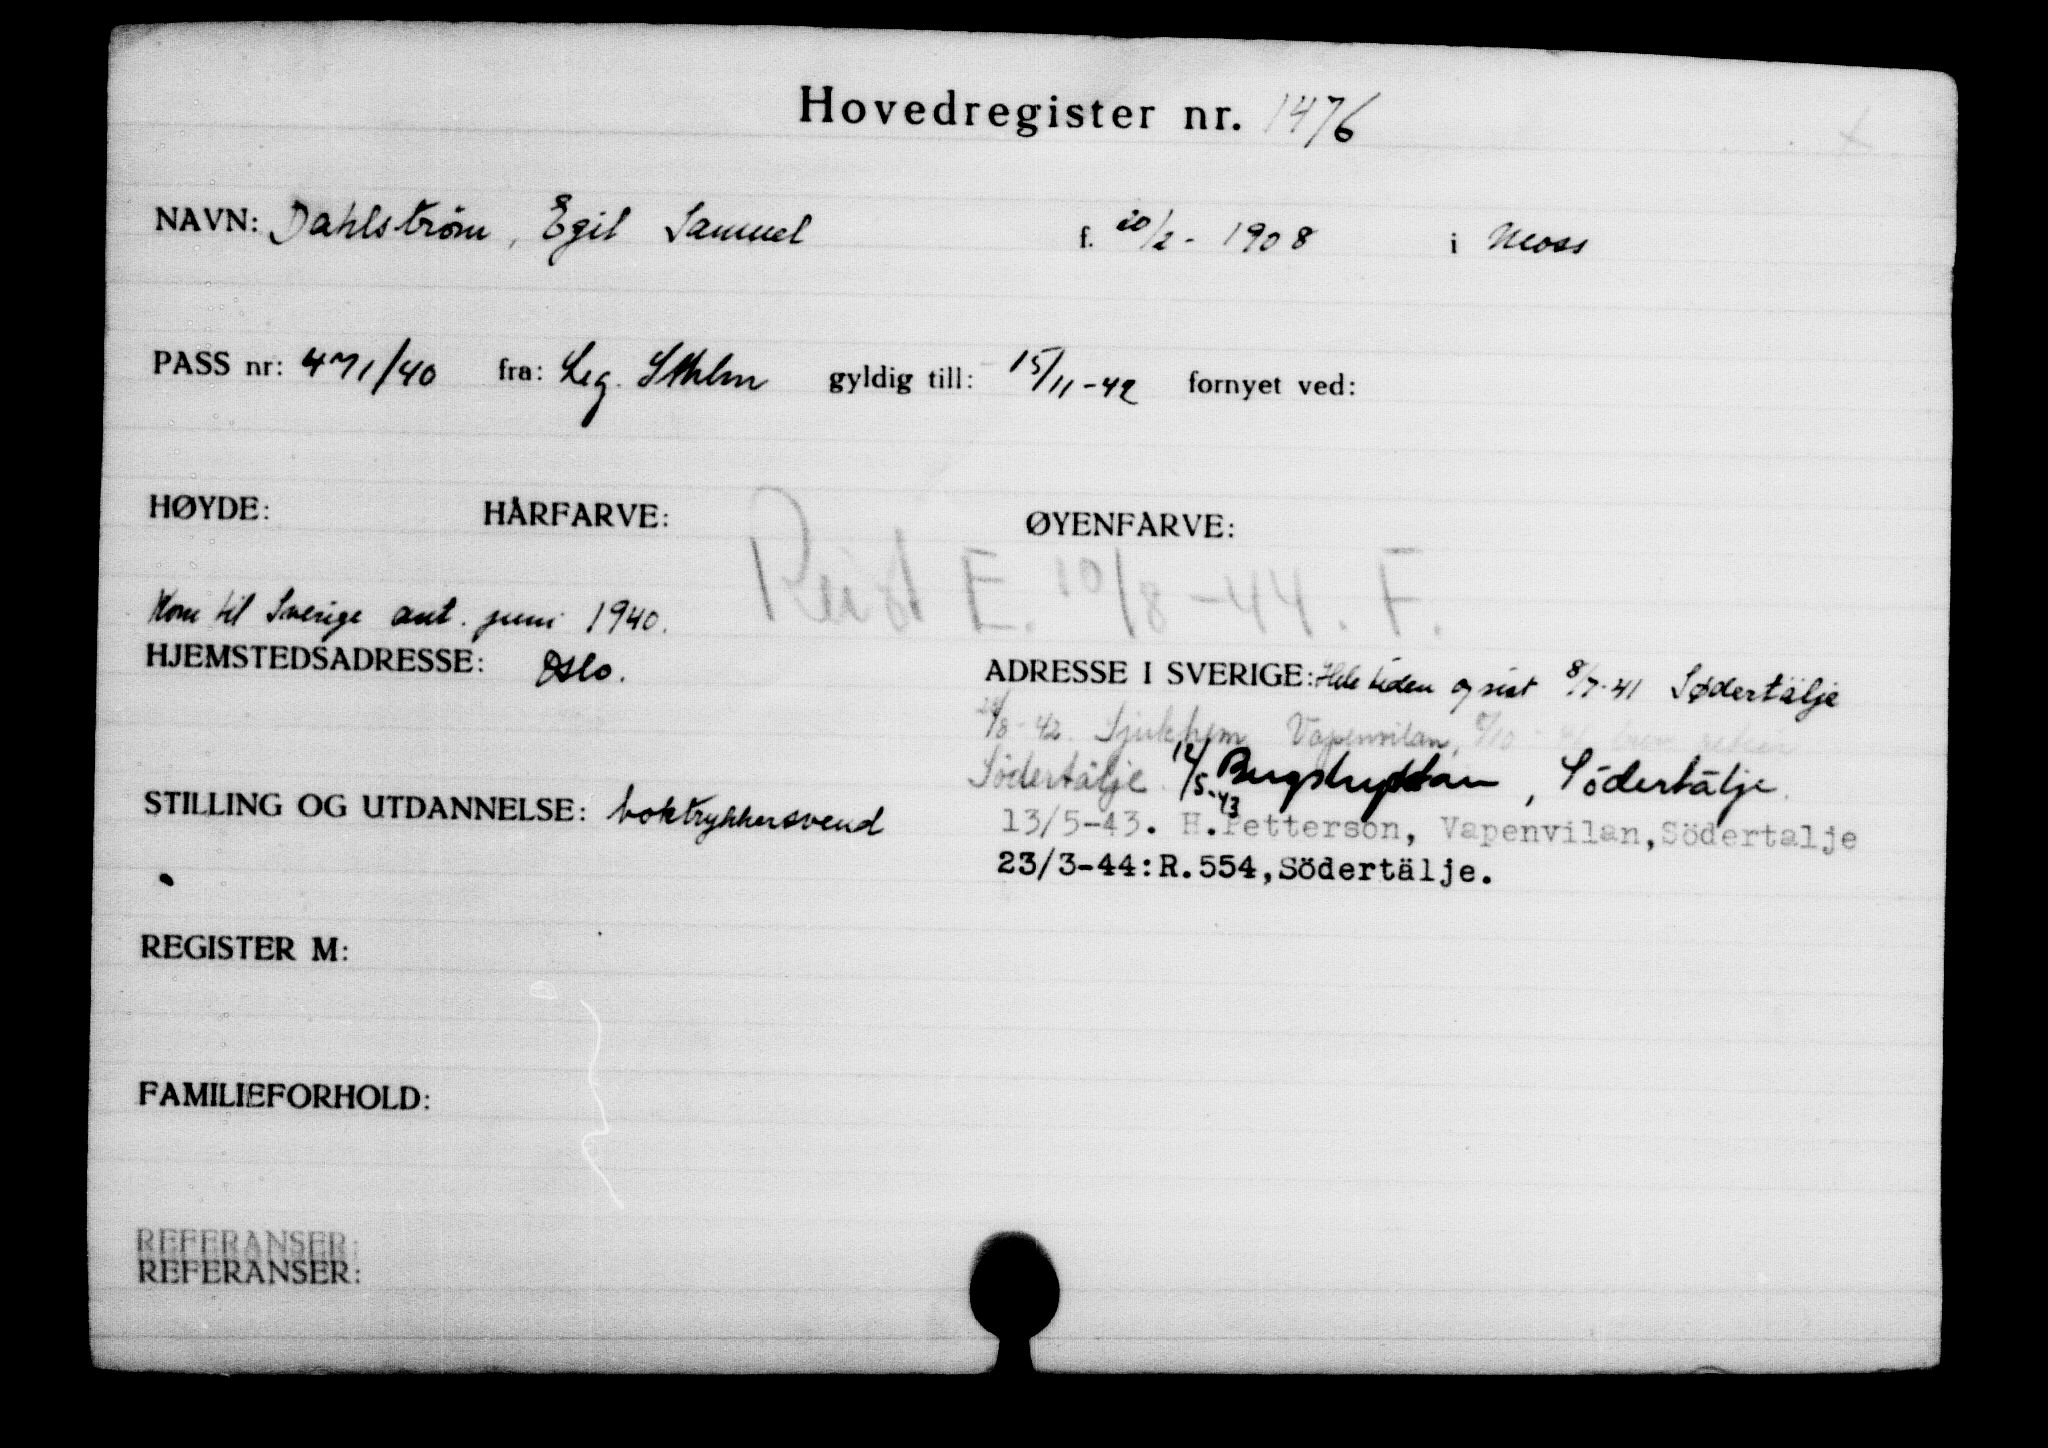 Hovedregister nr. 1476
NAVN: Dahlstrøm, Egil Samuel f. 20/2 - 1908 i Moss
PASS nr: 471/40 fra: Leg. Sthlm gyldig till: 15/11-42 fornyet ved:
HØYDE: HÅRFARVE: ØYENFARVE:
Reist E. 10/8-44. F.
Kom til Sverige ant. juni 1940.
HJEMSTEDSADRESSE: Oslo.
ADRESSE I SVERIGE: Hele tiden og sist 8/7-41 Sødertälje
/8-42. Sjukhem Vapenvilan,
Södertälje. 12/5-43 Bergshyddan, Södertälje.
STILLING OG UTDANNELSE: boktrykkersvend
13/5-43. H. Petterson, Vapenvilan, Södertalje
23/3-44: R.554, Södertälje.
REGISTER M:
FAMILIEFORHOLD:
REFERANSER:
REFERANSER: